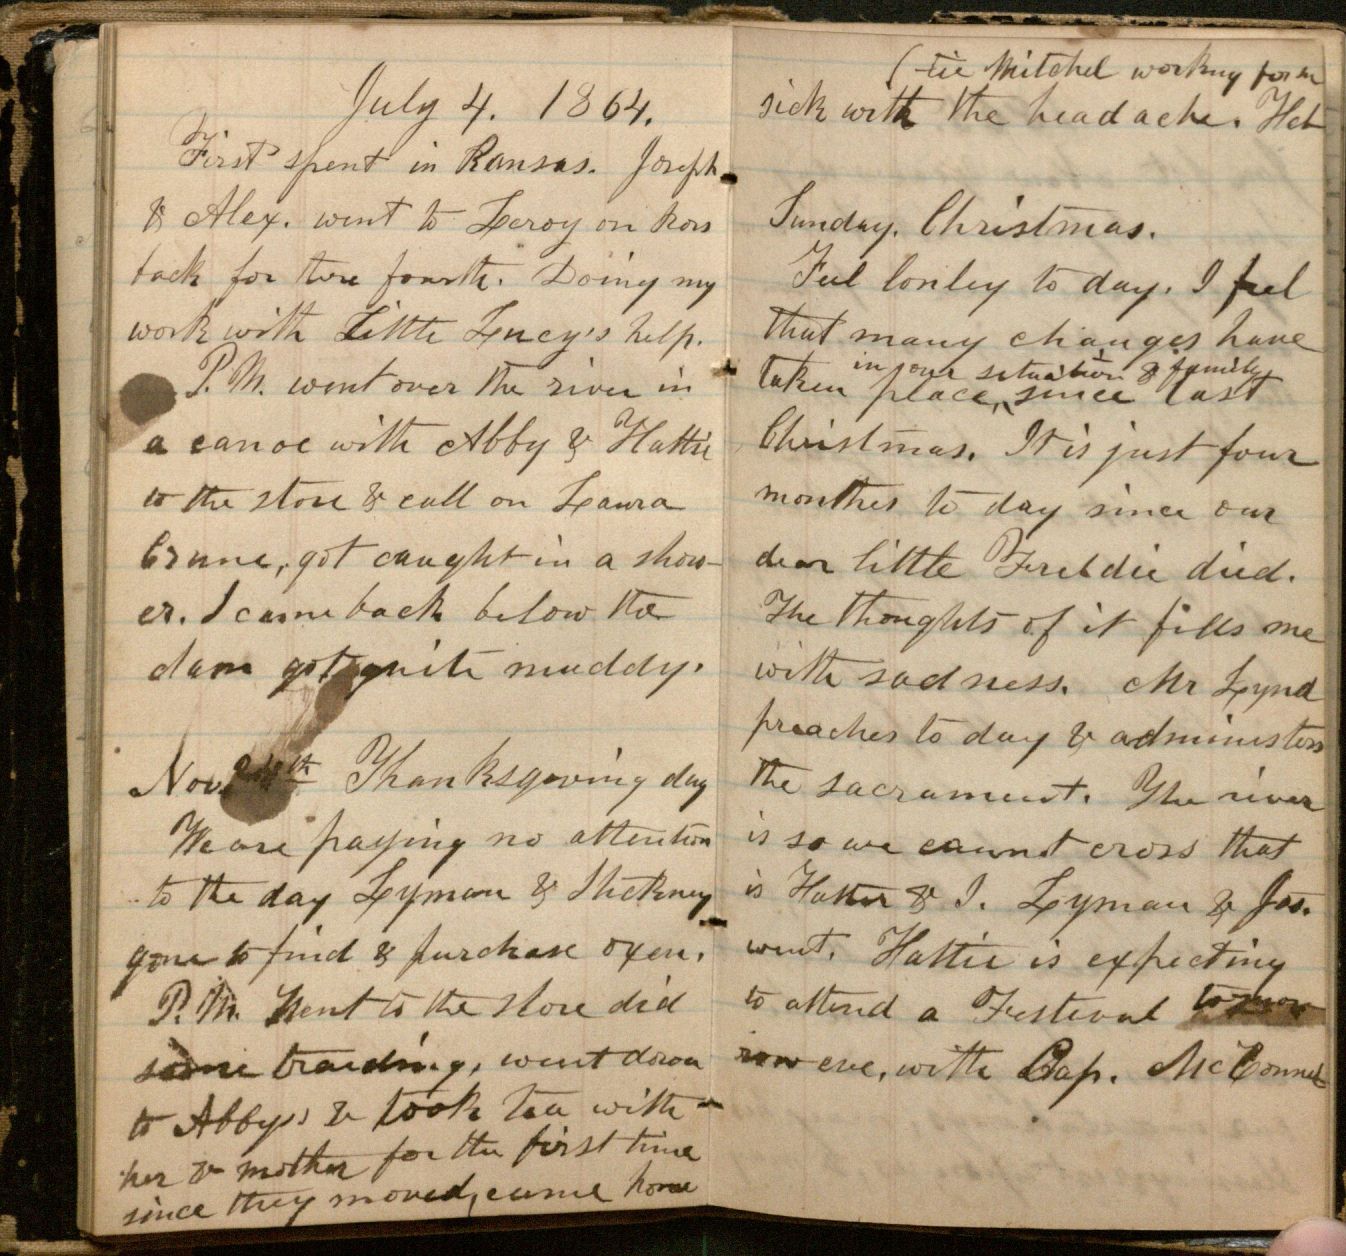 July 4. 1864.
First spent in Kansas. Joseph
& Alex. went to Leroy on hors
back for the fourth. Doing my
work with Little Lucy's help.
P.M. went over the river in
a canoe with Abby & Hattie
to the store & call on Laura
got caught in a show-
er. I came back below the
dam got quite muddy.
Nov 24th Thanksgiving day
We are paying no attention
to the day Lyman & Stickney
gone to find & purchase oxen.
P.M. Went to the store did
some trading, went down
to Abby's & took tea with
her & mother for the first time
since they moved, came home
(tie Mitchel working for m
sick with the headache. Hat
Sunday. Christmas.
Feel lonley to day. I feel
that many changes have
in our situation & family
taken place, since last
Christmas. It is just four
monthes to day since our
dear little Freddie died.
The thoughts of it fills me
with sadness. Mr Lynd
preaches to day & administers
the sacrament. The river
is so we cannot cross that
is Hattie & I. Lyman & Jos.
went. Hattie is expecting
to attend a Festival tomor
row eve, with Cap. McConnel